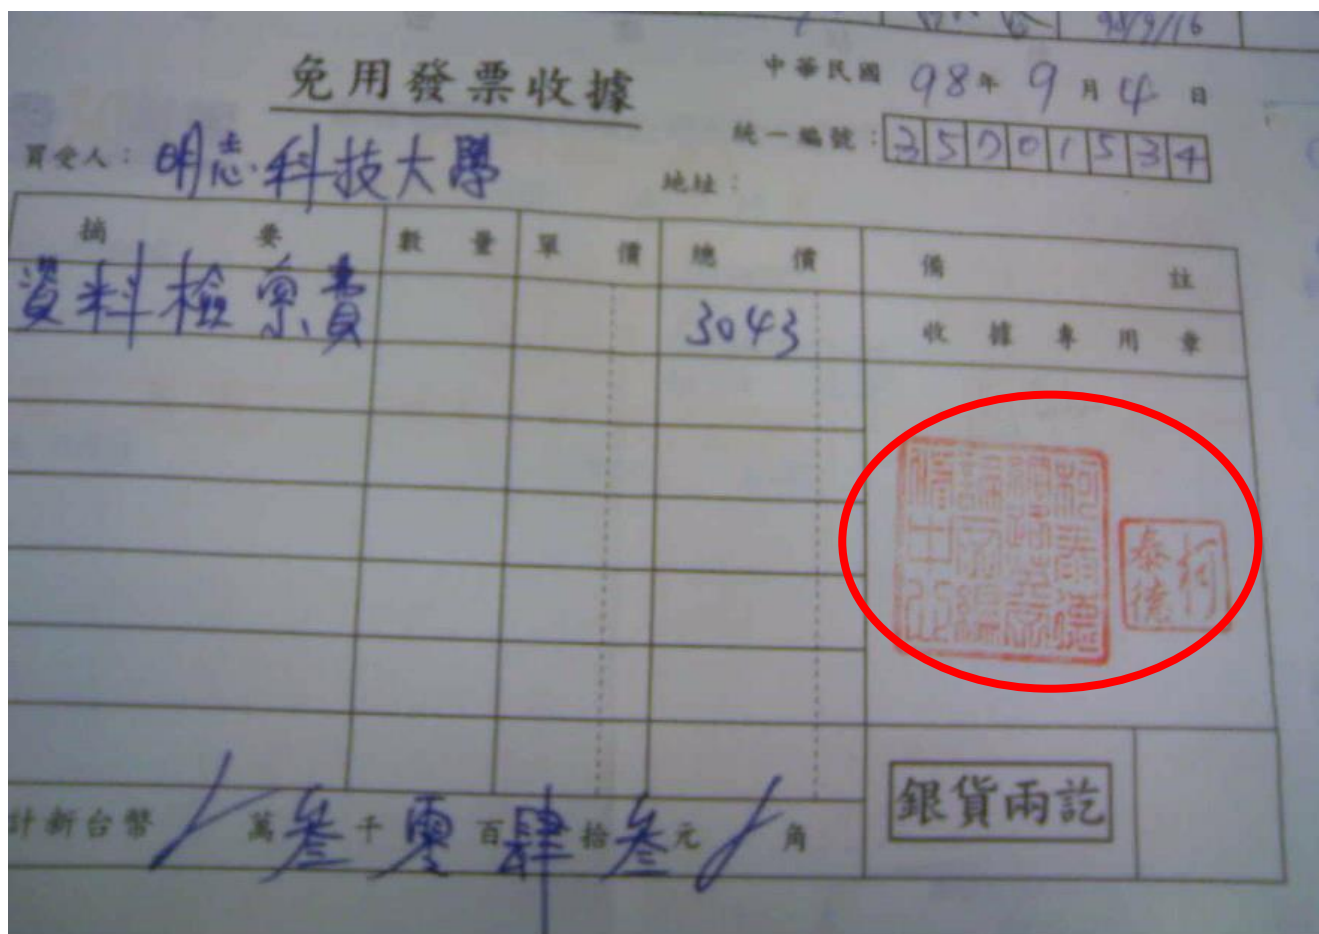 98/9/16
免用發票收據
中華民國 98年 9月 4日
統一編號：35001534
買受人：明志科技大學
地址：
摘要 數量 單價 總價 備註
資料檢索費 3043
收據專用章
柯泰德
線上英
論文編
修中心
柯
泰德
計新台幣 / 萬 叁 千 零 百 肆 拾 叁 元 / 角
銀貨兩訖